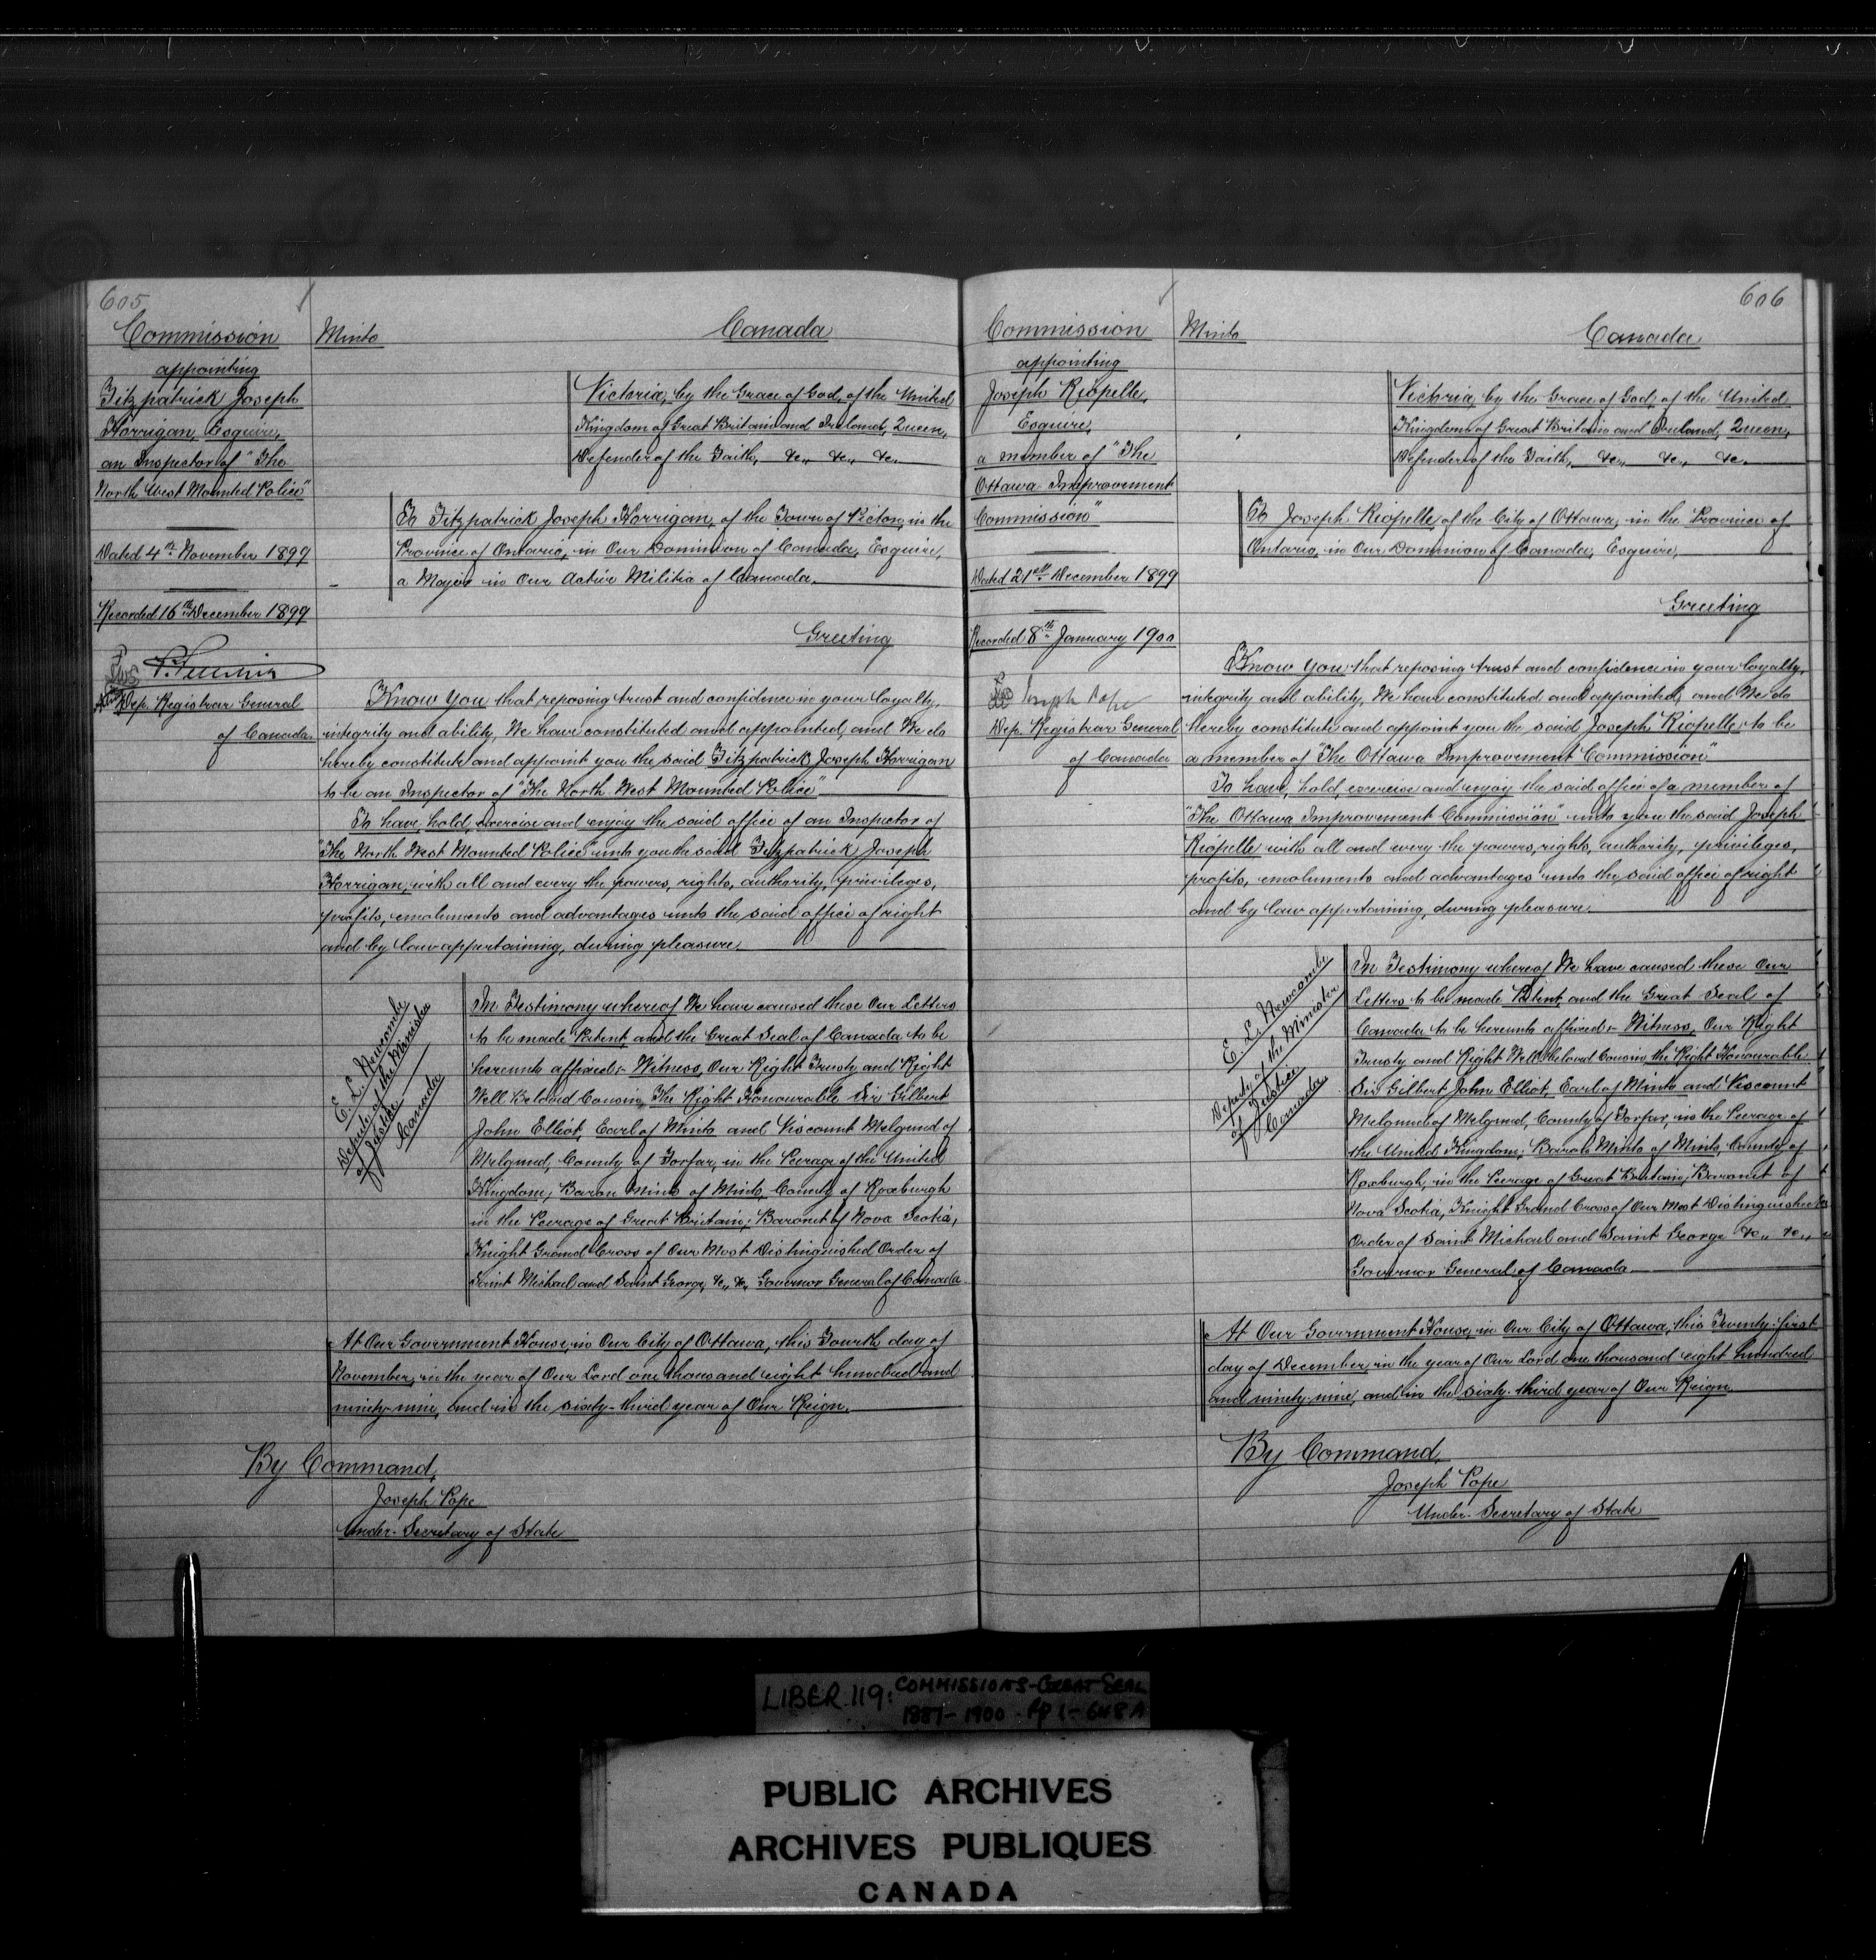 605
Commission
appointing
Fitzpatrick Joseph
Horrigan, Esquire,
an Inspector of "The
North West Mounted Police"
Dated 4th November 1899
Recorded 16th December 1899
Dep. Registrar General
of Canada
Minto
Canada
Victoria, by the Grace of God, of the United
Kingdom of Great Britain and Ireland, Queen,
Defender of the Faith, &c,, &c,, &c.
To Fitzpatrick Joseph Horrigan, of the Town of Picton, in the
Province of Ontario, in Our Dominion of Canada, Esquire,
a Major in Our Active Militia of Canada.
Greeting
Know You that reposing trust and confidence in your loyalty,
integrity and ability, We have constituted and appointed, and We do
hereby constitute and appoint you the said Fitzpatrick Joseph Horrigan
to be an Inspector of "The North West Mounted Police"
To have, hold, exercise and enjoy the said office of an Inspector of
"The North West Mounted Police" unto you the said Fitzpatrick Joseph
Horrigan, with all and every the powers, rights, authority, privileges,
profits, emoluments and advantages unto the said office of right
and by law appertaining, during pleasure.
E. L. Newcombe
Deputy of the Minister
of Justice
Canada
In Testimony whereof We have caused these Our Letters
to be made Patent, and the Great Seal of Canada to be
hereunto affixed:- Witness, Our Right Trusty and Right
Well Beloved Cousin, The Right Honourable Sir Gilbert
John Elliot, Earl of Minto and Viscount Melgund of
Melgund, County of Forfar, in the Peerage of the United
Kingdom; Baron Minto of Minto, County of Roxburgh
in the Peerage of Great Britain; Baronet of Nova Scotia,
Knight Grand Cross of Our Most Distinguished Order of
Saint Michael and Saint George, &c,, &c,, Governor General of Canada
At Our Government House, in Our City of Ottawa, this Fourth day of
November, in the year of Our Lord one thousand eight hundred and
ninety-nine, and in the sixty-third year of Our Reign.
By Command,
Joseph Pope
Under-Secretary of State
606
Commission
appointing
Joseph Riopelle,
Esquire,
a member of "The
Ottawa Improvement
Commission"
Dated 21st December 1899
Recorded 8th January 1900
Joseph Pope
Dep. Registrar General
of Canada
Minto
Canada
Victoria, by the Grace of God, of the United
Kingdom of Great Britain and Ireland, Queen,
Defender of the Faith, &c,, &c,, &c.
To Joseph Riopelle, of the City of Ottawa, in the Province of
Ontario, in Our Dominion of Canada, Esquire,
Greeting
Know You that reposing trust and confidence in your loyalty,
integrity and ability, We have constituted and appointed, and We do
hereby constitute and appoint you the said Joseph Riopelle to be
a member of "The Ottawa Improvement Commission"
To have, hold, exercise and enjoy the said office of a member of
"The Ottawa Improvement Commission" unto you the said Joseph
Riopelle with all and every the powers, rights, authority, privileges,
profits, emoluments and advantages unto the said office of right
and by law appertaining, during pleasure.
E. L. Newcombe
Deputy of the Minister
of Justice
Canada
In Testimony whereof We have caused these Our
Letters to be made Patent, and the Great Seal of
Canada to be hereunto affixed:- Witness, Our Right
Trusty and Right Well beloved Cousin the Right Honourable
Sir Gilbert John Elliot, Earl of Minto and Viscount
Melgund of Melgund, County of Forfar, in the Peerage of
the United Kingdom; Baron Minto of Minto, County of
Roxburgh, in the Peerage of Great Britain; Baronet of
Nova Scotia, Knight Grand Cross of Our Most Distinguished
Order of Saint Michael and Saint George &c,, &c,,
Governor General of Canada
At Our Government House, in Our City of Ottawa, this Twenty-first
day of December, in the year of Our Lord one thousand eight hundred
and ninety-nine, and in the sixty-third year of Our Reign
By Command,
Joseph Pope
Under-Secretary of State
LIBER 119: COMMISSIONS-GREAT SEAL
1887-1900 - Pp 1-648A
PUBLIC ARCHIVES
ARCHIVES PUBLIQUES
CANADA